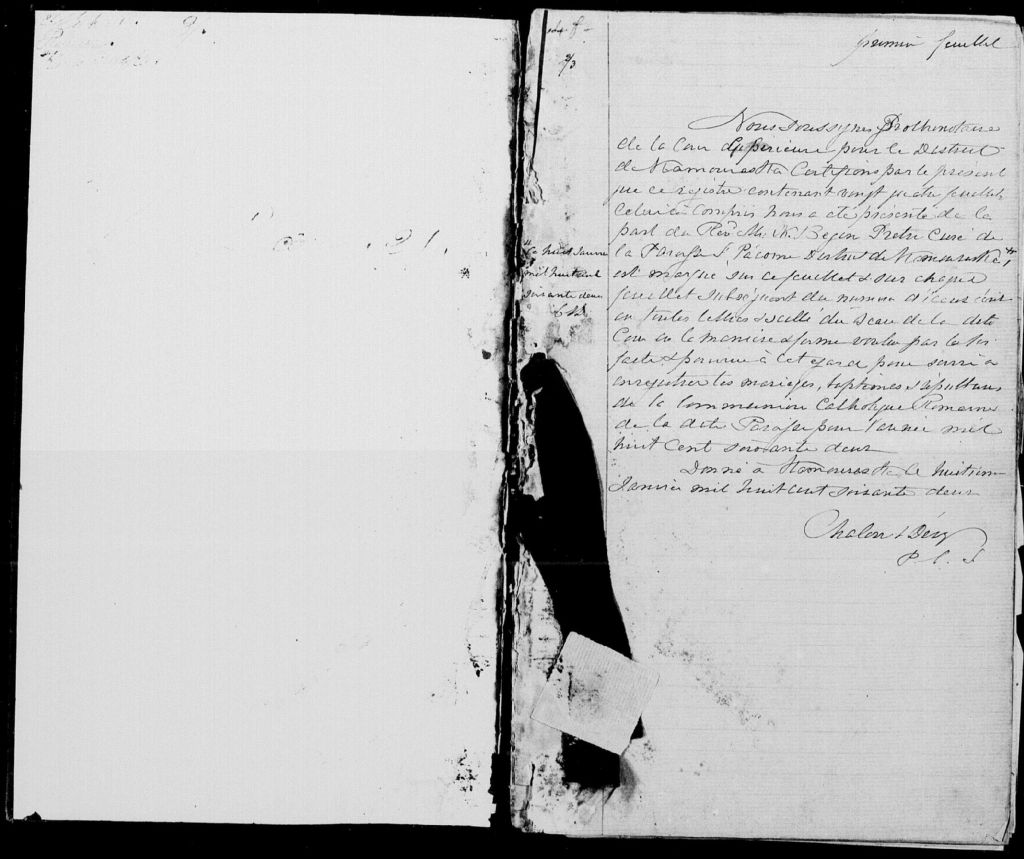 premier feuillet
Nous soussignés Prothonotaire
de la Cour Supérieure pour le District
de Kamouraska Certifions par le présent
que ce régistre contenant vingt quatre feuillets
Celui ci Compris nous a été présenté de la
part du Revd Mr N. Begin Pretre Curé de
la Paroisse St Pacome District de Kamouraska
est marqué sur ce feuillet & sur chaque
feuillet subséquent du numero d'iceux écrit
en toutes lettres & scellé du Sceau de la dite
Cour en la manière & forme voulue par la loi
faite & pourvue à cet égard pour servir à
enregistrer les mariages, baptemes & sépultures
de la Communion Catholique Romaine
de la dite Paroisse pour l'année mil
huit Cent soixante deux
Donné à Kamouraska Ce huitieme
Janvier mil huit cent soixante deux
Chalou & Déry
P. C. S
Ce huit Janvier
mil huit cent
soixante deux